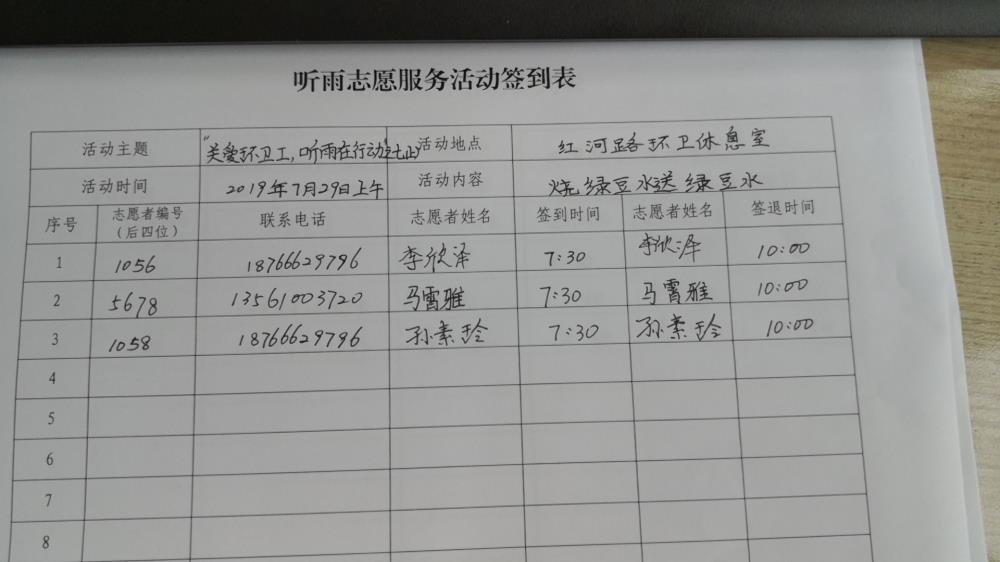 听雨志愿服务活动签到表
活动主题 "关爱环卫工,听雨在行动" 活动地点 红河路环卫休息室
活动时间 2019年7月29日上午 活动内容 烧绿豆水送绿豆水
序号 志愿者编号(后四位) 联系电话 志愿者姓名 签到时间 志愿者姓名 签退时间
1 1056 18766629796 李欣泽 7:30 李欣泽 10:00
2 5678 13561003720 马雪雅 7:30 马雪雅 10:00
3 1058 18766629796 孙素玲 7:30 孙素玲 10:00
4
5
6
7
8